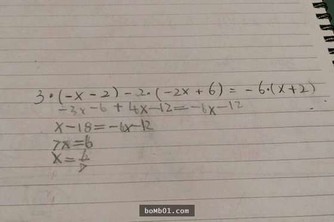 3·(-x-2)-2·(-2x+6)=-6·(x+2)
-3x-6+4x-12=-6x-12
x-18=-6x-12
7x=6
x=6/7
boMb01.com